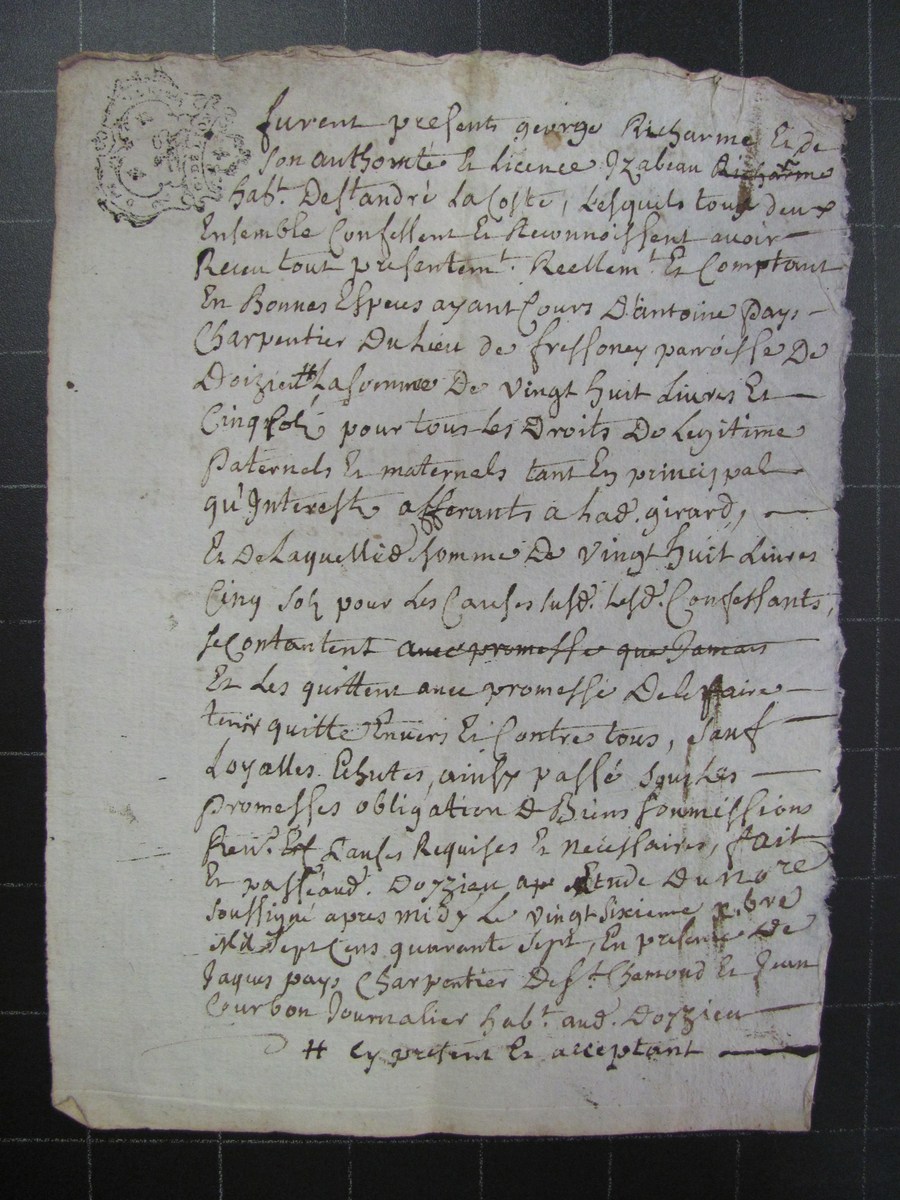 furent presents george Richarme Et de
son authorité Et licence Izabeau Richarme
habt. De st andré La Coste, Lesquels tous deux
Ensemble Confessent Et Reconnoissent avoir
Receu tout presentemt. Reellemt. Et Comptant
En Bonnes Especes ayant Cours D'antoine pays
Charpentier Du Lieu de fressoney parroisse De
Doizieu # La somme De vingt huit Livres Et
Cinq sols pour tous Les Droits De Legitime
Paternels Et maternels tant En principal
qu'Interests afferants a lad. girard,
Et De Laquelle d. somme De vingt huit Livres
Cinq sols pour Les Causes susd. Lesd. Confessants,
se Contantent avec promesse que Jamais
Et Les quittent avec promesse De le faire
tenir quitte Envers Et Contre tous, sauf
Loyalles Echutes, ainsy passé sous Les
Promesses obligation de Biens soumissions
Ren. Et Clauses Requises Et necessaires, fait
Et passé aud. Doyzieu Etude Du nore
soussigné apres midy Le vingt sixieme bre
mil sept Cens quarante sept, En presence De
Jaques pays Charpentier De st. Chamond Et Jean
Courbon Journalier habt. aud. Doyzieu
# Cy present Et acceptant